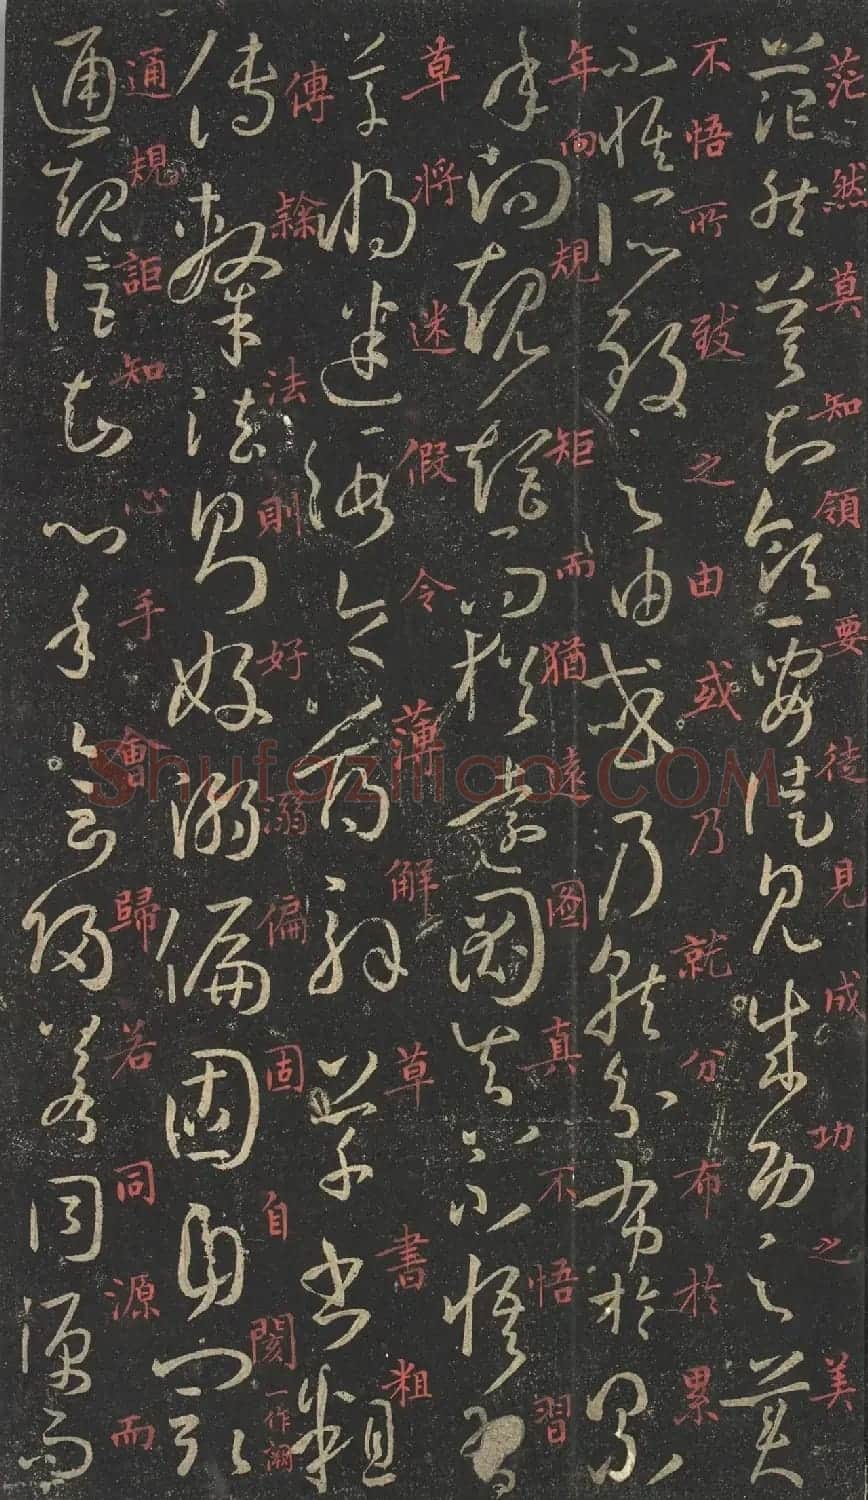 茫然莫知領要徒見成功之美
不悟所致之由或乃就分布於累
年向規矩而猶遠圖真不悟習
草將迷假令薄解草書粗
傳隸法則好溺偏固自
一作
通規詎知心手會歸若同源而
Shufaziliao.COM